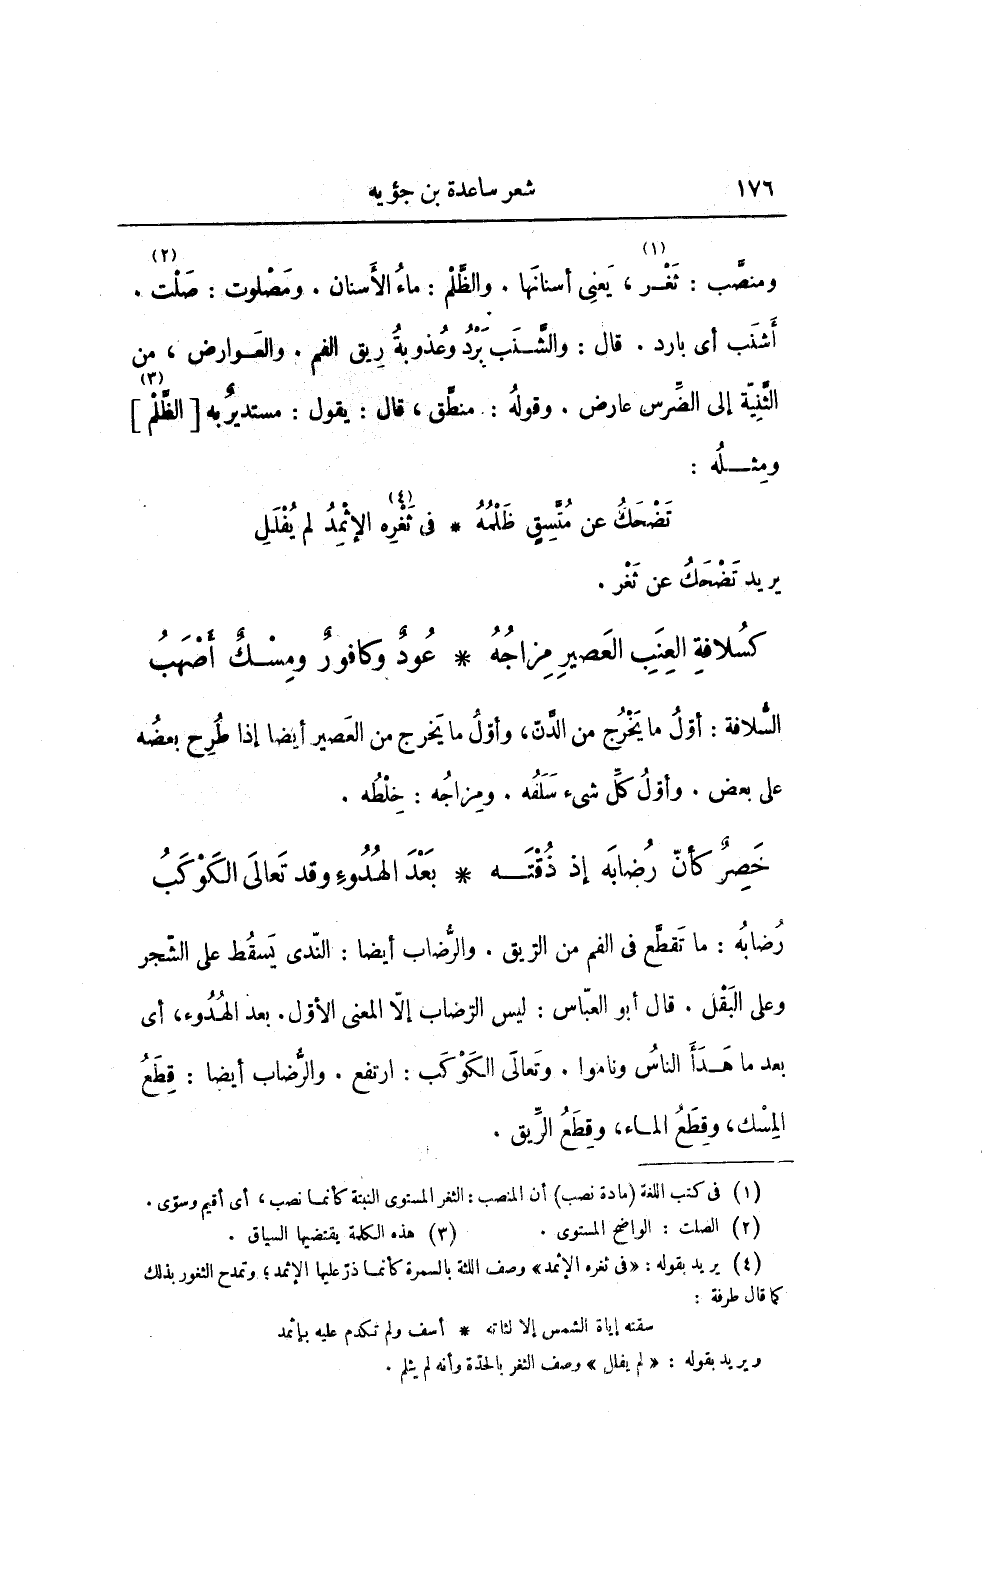 ١٧٦ شعر ساعدة بن جؤية
ومنصَّب : ثَغْـر (١) ، يَعنِى أسنانَها . والظَّلْم : ماءُ الأَسنان . ومَصْلوت : صَلْت (٢) .
أَشنَب أى بارد . قال : والشَّنَب بَرْدُ وعُذوبةُ رِيق الفم . والعَوارض ، من
الثَّنِيّة إلى الضِّرس عارض . وقولهُ : منطَّق ، قال : يقول : مستديرٌ به [ الظَّلْم (٣) ]
ومِثلُه :
تَضْحَكُ عن مُتَّسِقٍ ظَلْمُهُ * فى ثَغْرِه (٤) الإثْمِدُ لم يُفْلَلِ
يريد تَضْحَكُ عن ثَغْر .
كسُلافةِ العِنَبِ العَصيرِ مِزاجُهُ * عُودٌ وكافورٌ ومِسْكٌ أَصْهَبُ
السُّلافة : أوّلُ ما يَخْرُج من الدَّنّ، وأوّلُ ما يَخرج من العَصير أيضا إذا طُرِح بعضُه
على بعض . وأوّلُ كلِّ شىء سَلَفُه . ومِزاجُه : خِلْطُه .
خَصِرٌ كأنّ رُضابَه إذ ذُقْتَـه * بَعْدَ الهُدُوءِ وقد تَعالَى الكَوْكَبُ
رُضابُه : ما تَقطَّع فى الفم من الرّيق . والرُّضاب أيضا : النّدى يَسقُط على الشّجر
وعلى البَقْل . قال أبو العبّاس : ليس الرّضاب إلّا المعنى الأوّل. بعد الهُدُوء، أى
بعد ما هَدَأَ الناسُ وناموا . وتَعالَى الكَوْكَب : ارتفع . والرُّضاب أيضا : قِطَعُ
المِسْك، وقِطَعُ الماء، وقِطَعُ الرِّيق .
(١) فى كتب اللغة (مادة نصب) أن المنصب : الثغر المستوى النبتة كأنما نصب، أى أقيم وسوّى .
(٢) الصلت : الواضح المستوى . (٣) هذه الكلمة يقتضيها السياق .
(٤) يريد بقوله : «فى ثغره الإثمد» وصف اللثة بالسمرة كأنما ذرّ عليها الإثمد؛ وتمدح الثغور بذلك
كما قال طرفة :
سقته إياة الشمس إلا لثاته * أسف ولم تكدم عليه بإثمد
ويريد بقوله : « لم يفلل » وصف الثغر بالحدّة وأنه لم يثلم .